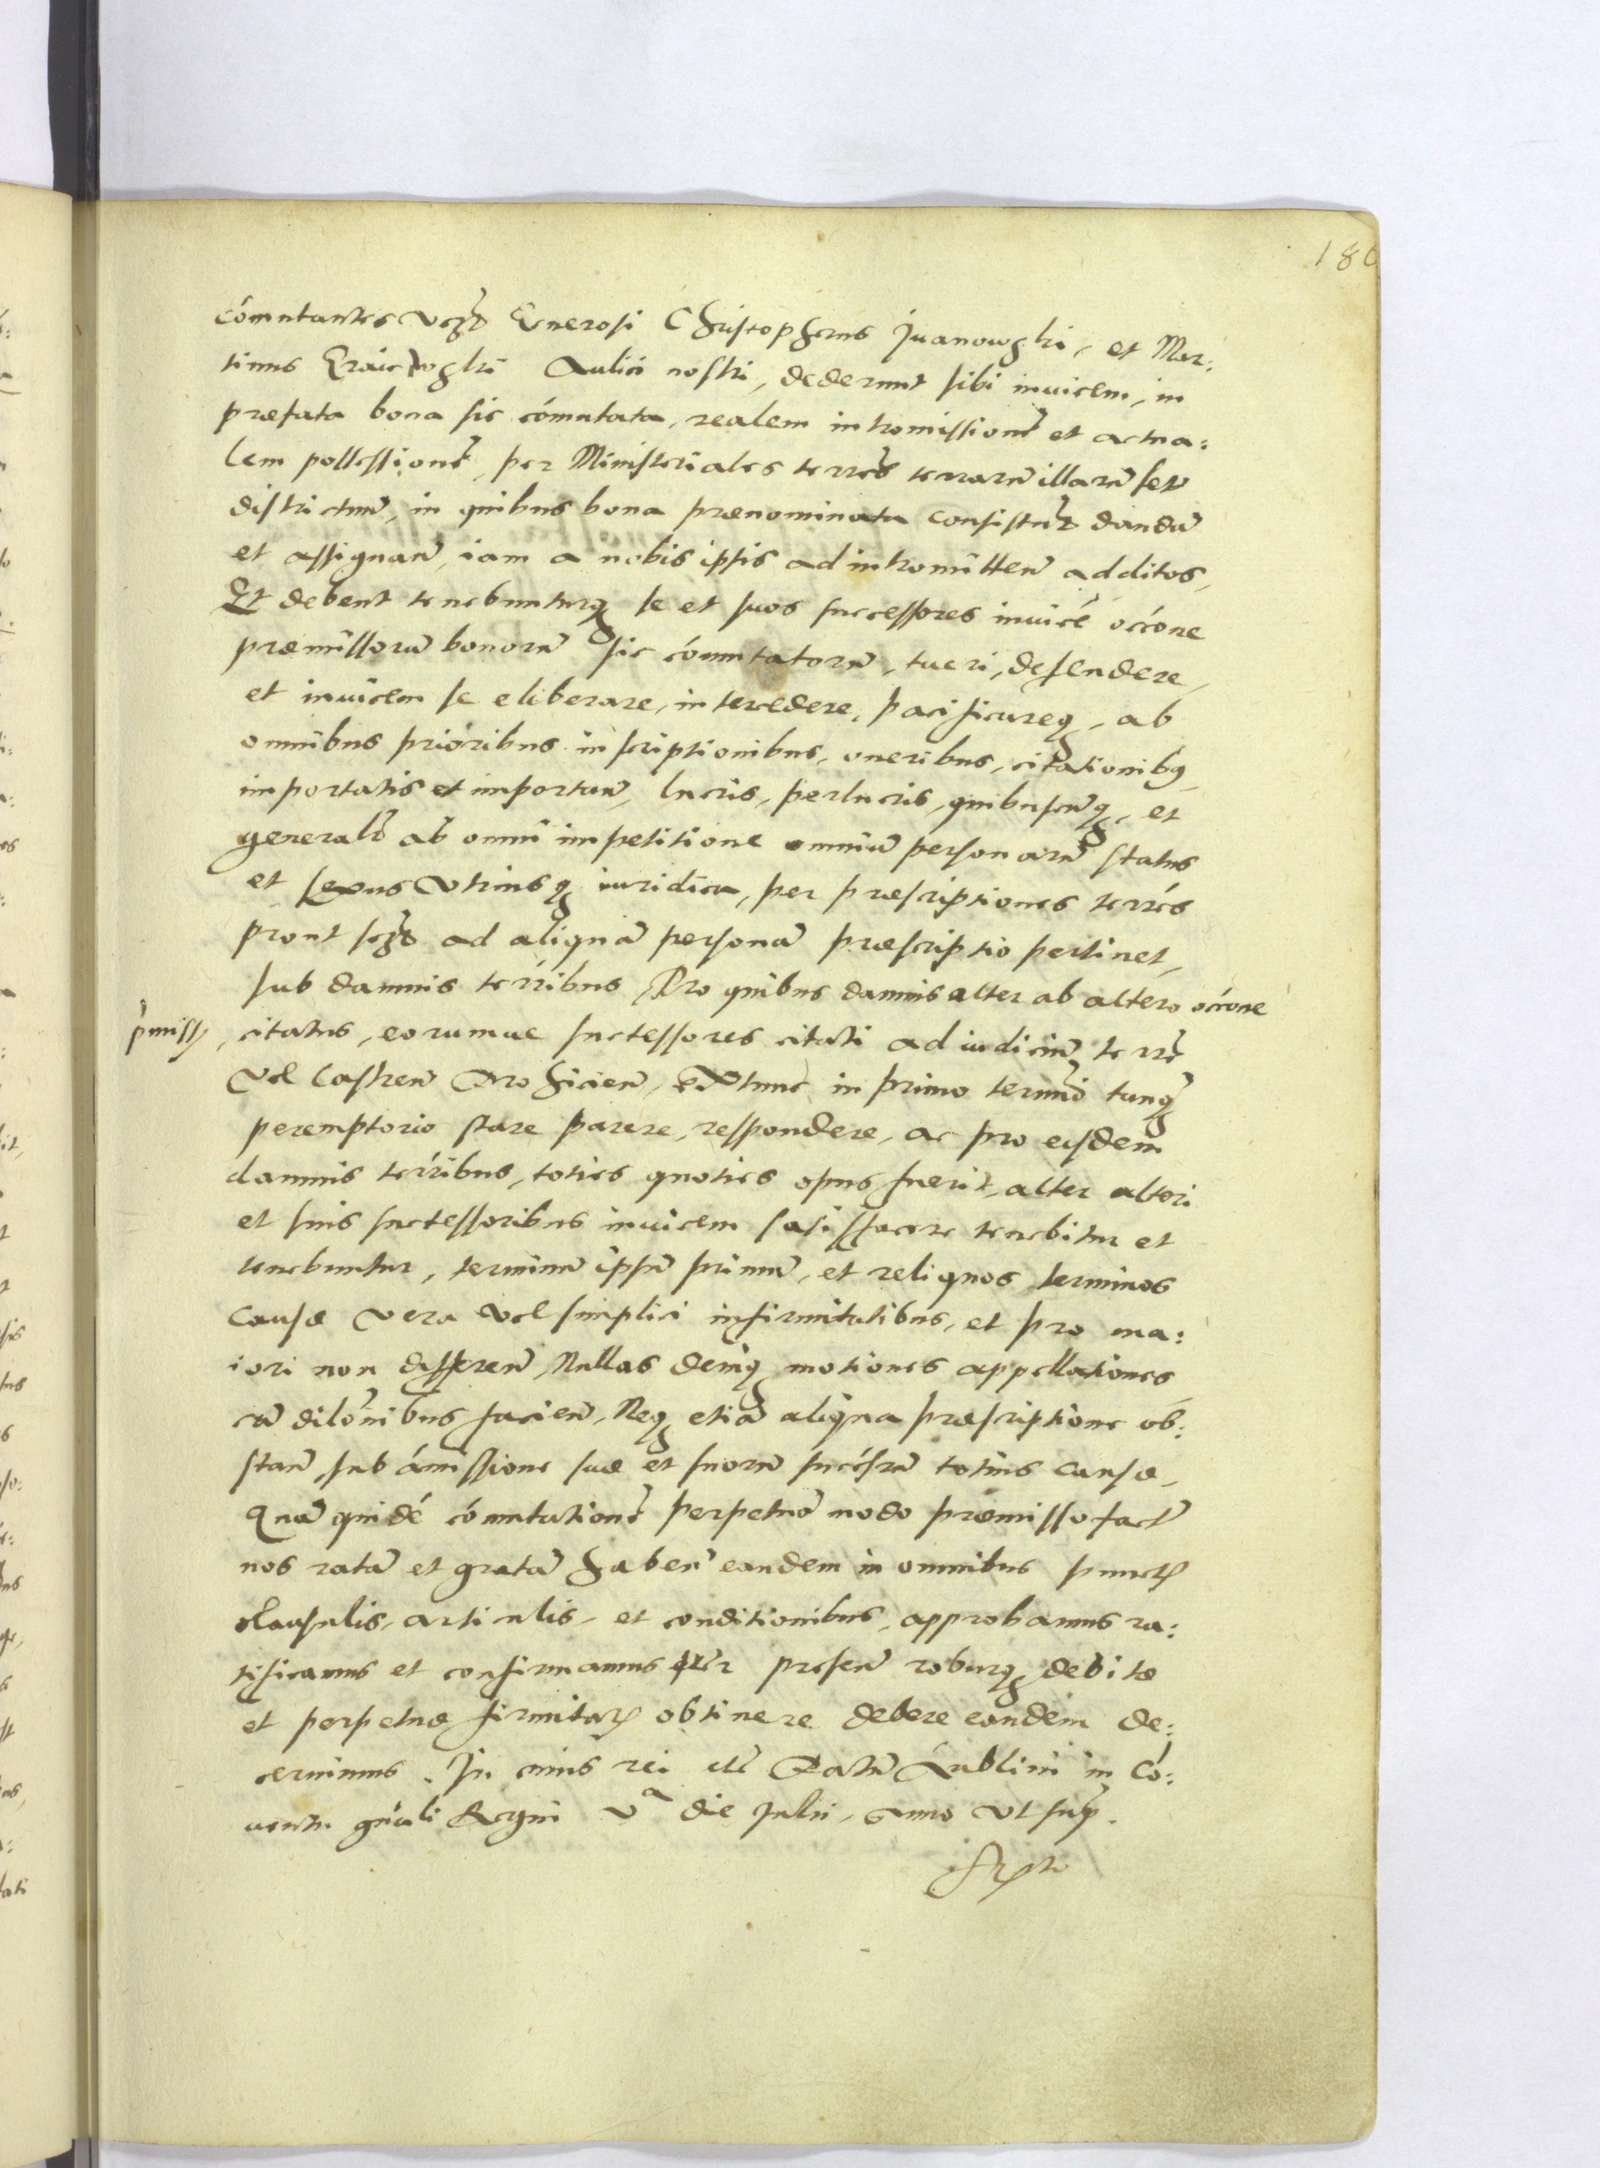 180
cómutantes Generosi Christopherus Jvanowski, et Mar:
tinus Aulici nostri, dederunt sibi invicem, in
præfata bona sic cómutata, realem intromissionē et actua:
lem possessionē, per Ministeriales terrēs terrarū illarū seu
districtuū, in quibus bona prænominata consistūt dandā
et assignan̄, iam a nobis ipsis ad intromitten̄ additos,
Et debent tenebunturq se et suos successores invicē occóne
præmissorū bonorū sic cómutatorū, tueri, defendere,
et invicem se eliberare, intercedere, pacificareq, ab
omnibus prioribus inscriptionibus, oneribus, citationibq,
importatis et importan̄, lucris, perlucris, quibuscunq, et
generalr̄ ab omni impetitione omniū personarū status
et sexus utriusq iuridica, per præscriptiones terrés
prout ad aliquā personā præscriptio pertinet,
sub damnis terribus, Pro quibus damnis alter ab altero occóne
pmiss, citatus, eorumve successores citati ad iudiciū terrē
Vel Castren̄ Proficien̄, extunc in primo termō tanq
peremptorio stare parere, respondere, ac pro eisdem
damnis terribus, toties quoties opus fuerit, alter alteri
et suis successoribus invicem satisfacere tenebitur et
tenebuntur, terminū ipsū primū, et reliquos terminos
Causæ vera vel simplici infirmitatibus, et pro ma:
iori non differen̄, Nullas deniq motiones appellationes
cū dilōnibus facien̄, Neq etiā aliqua præscriptione ob:
stan̄, sub ámissione suæ et suorū succēsrū totius causæ,
Quā quidē cómutationē perpetuā modo præmisso factā
nos ratā et gratā haben̄ eandem in omnibus punct
clausulis, articulis, et conditionibus, approbamus ra:
tificamus et confirmamus presen̄ roburq debitæ
et perpetuæ firmitat obtinere debere eandem de:
cernimus. In cuius rei etc̄ Datū Lublini in Có:
ventu gn̄ali Regni Vᵃ die Julii, Anno Ut sup.